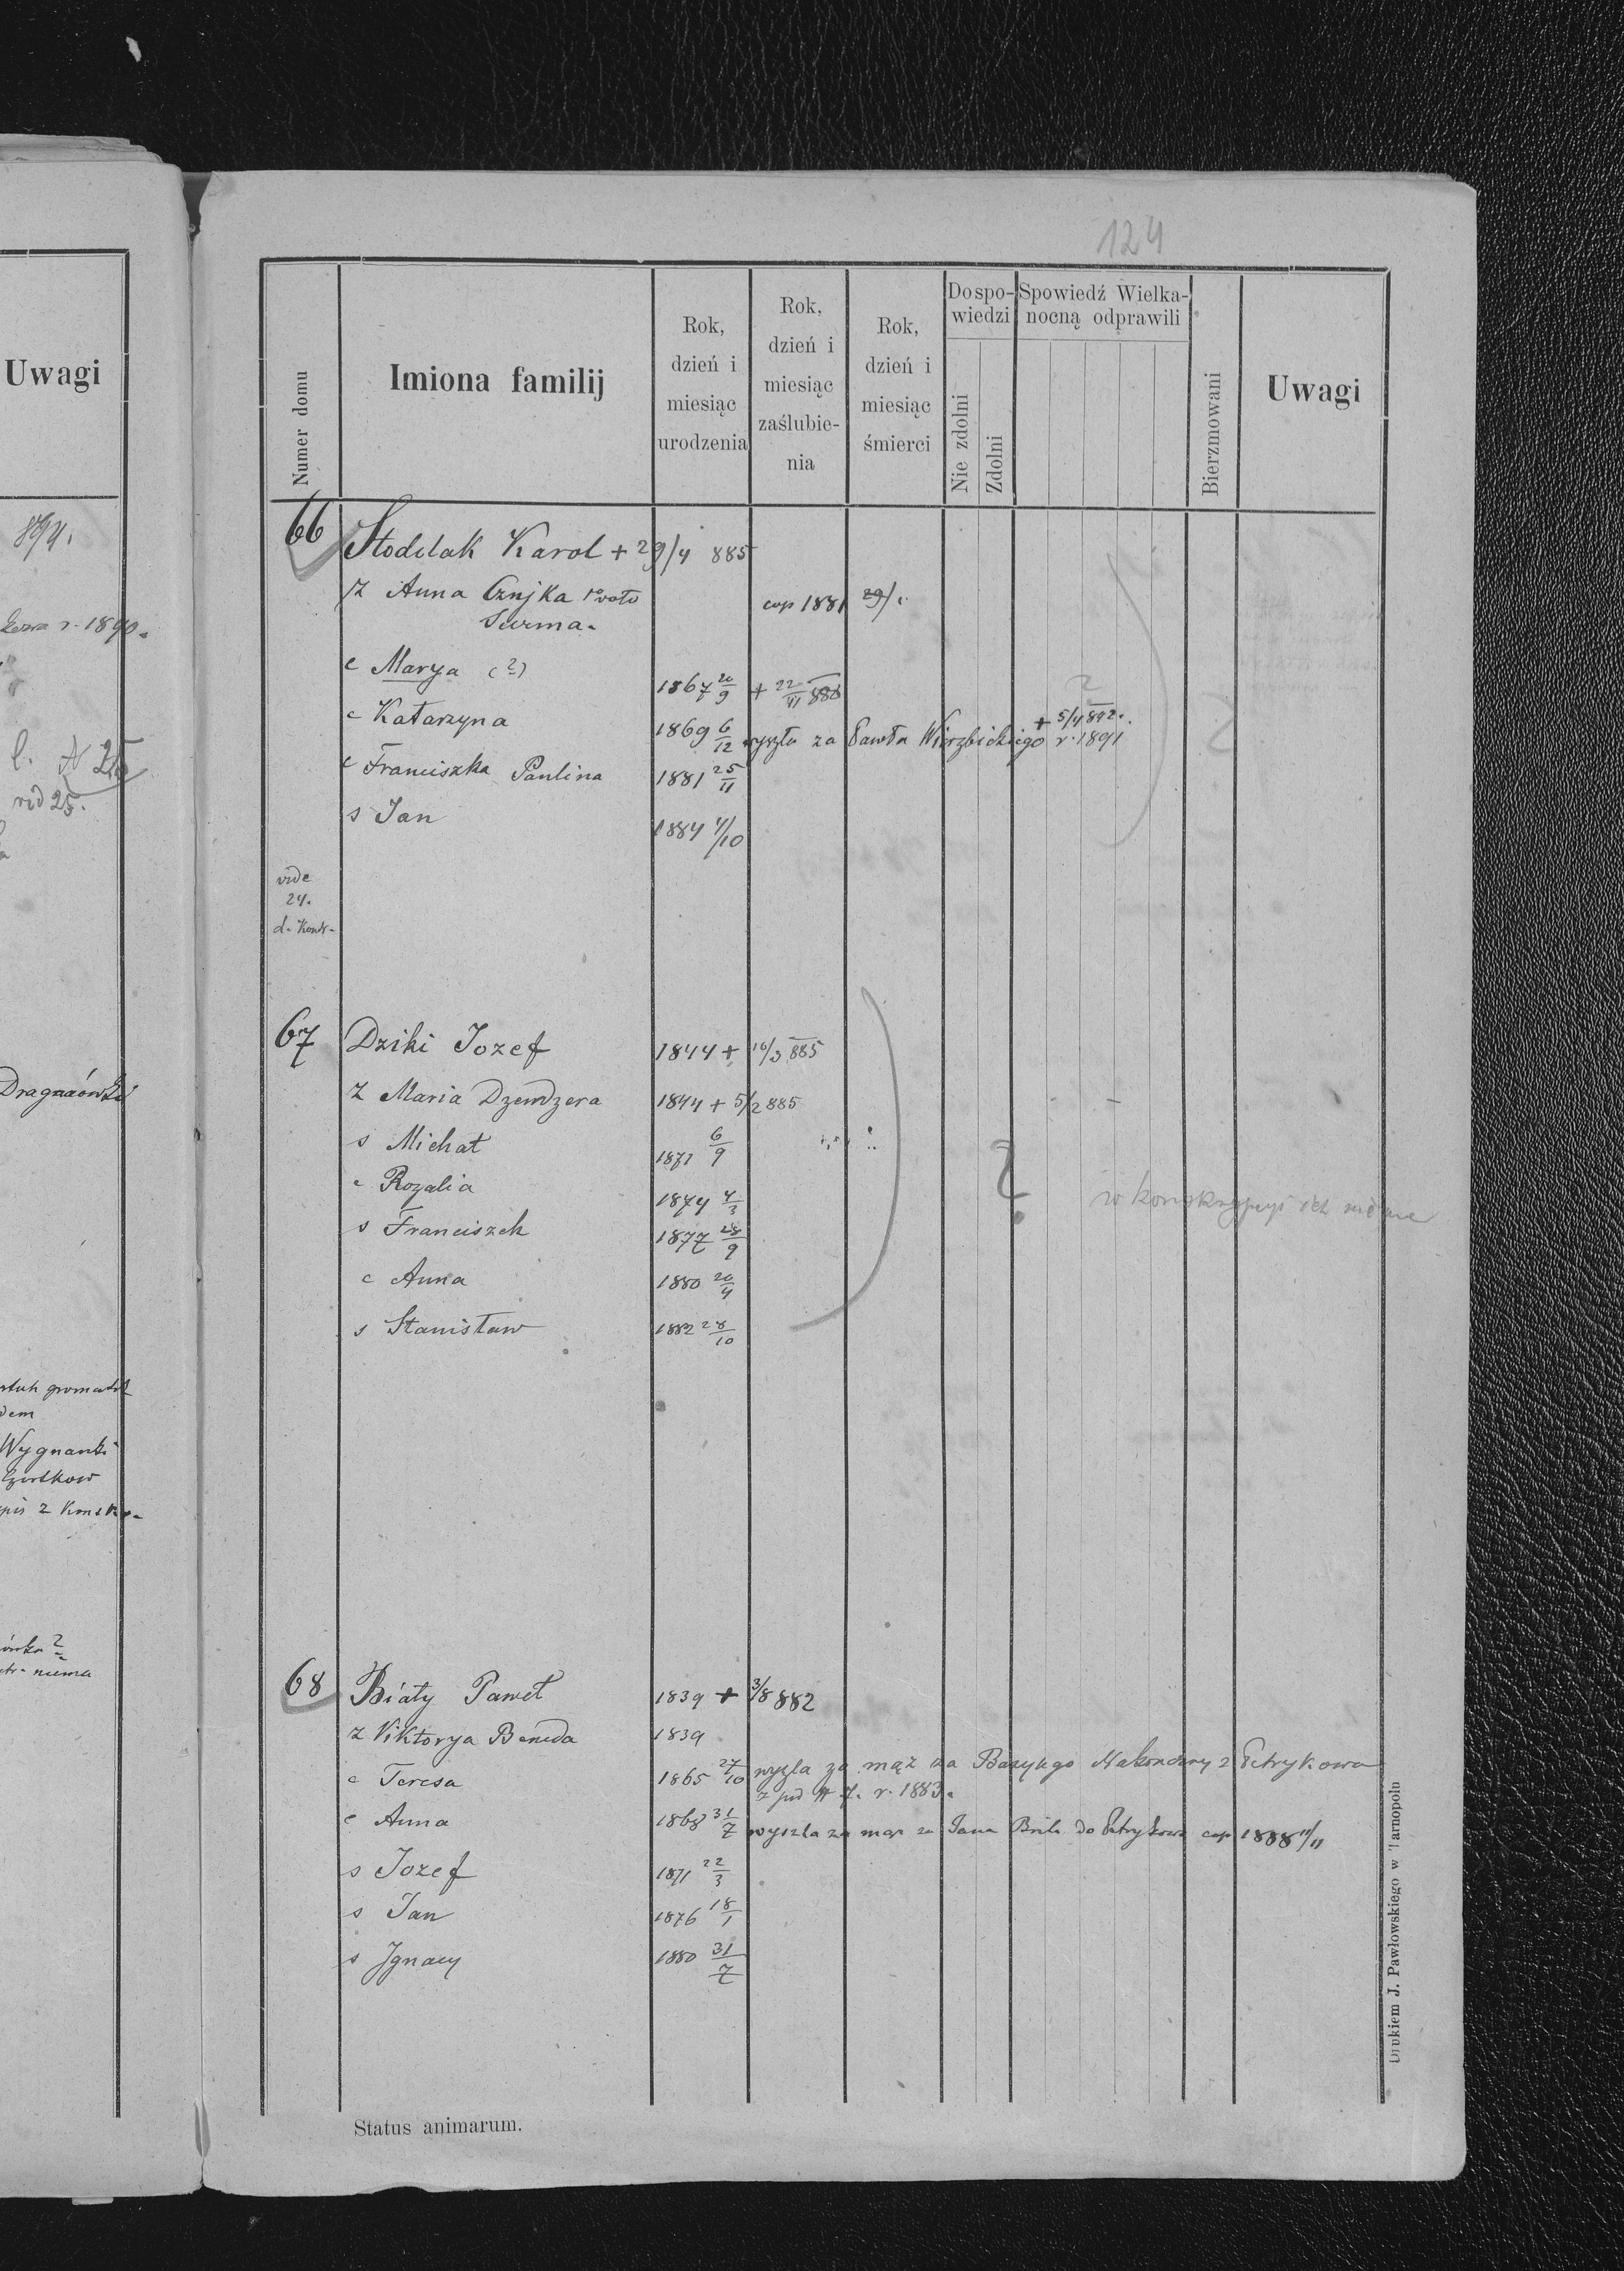 Uwagi
r. 1890.
N 25
vid 25.
Wygnanki
niema
124
Numer domu
Imiona familij
Rok, dzień i miesiąc urodzenia
Rok, dzień i miesiąc zaślubienia
Rok, dzień i miesiąc śmierci
Do spowiedzi
Nie zdolni
Zdolni
Spowiedź Wielkanocną odprawili
Bierzmowani
Uwagi
66 Stodolak Karol + 29/4 885
Ż Anna Czujka 1º voto cop 1881 29/
Surma.
c Marya (?) 1867 20/9 + 22/VI 880
c Katarzyna 1869 6/12 wyszła za Pawła Wierzbickiego r. 1891 + 5/4 892.
c Franciszka Paulina 1881 25/11
s Jan 1884 4/10
vide
24.
67 Dziki Jozef 1844 + 16/3 885
Ż Maria Dzendzera 1844 + 5/2 885
s Michał 1871 6/9
c Rozalia 1874 4/3
s Franciszek 1877 28/9
c Anna 1880 20/4
s Stanisław 1882 28/10
?
w konskrypcyi ich niema
68 Biały Paweł 1839 + 3/8 882
ż Viktorya Beneda 1839
c Teresa 1865 27/10 wyszla za mąż za z Petrykowa
z pod # 7. r. 1883.
c Anna 1868 31/7 wyszla za mąż za Jana do Petrykowa cop 1888 11/11
s Jozef 1871 22/3
s Jan 1876 18/1
s Ignacy 1880 31/7
Status animarum.
Drukiem J. Pawłowskiego w Tarnopolu